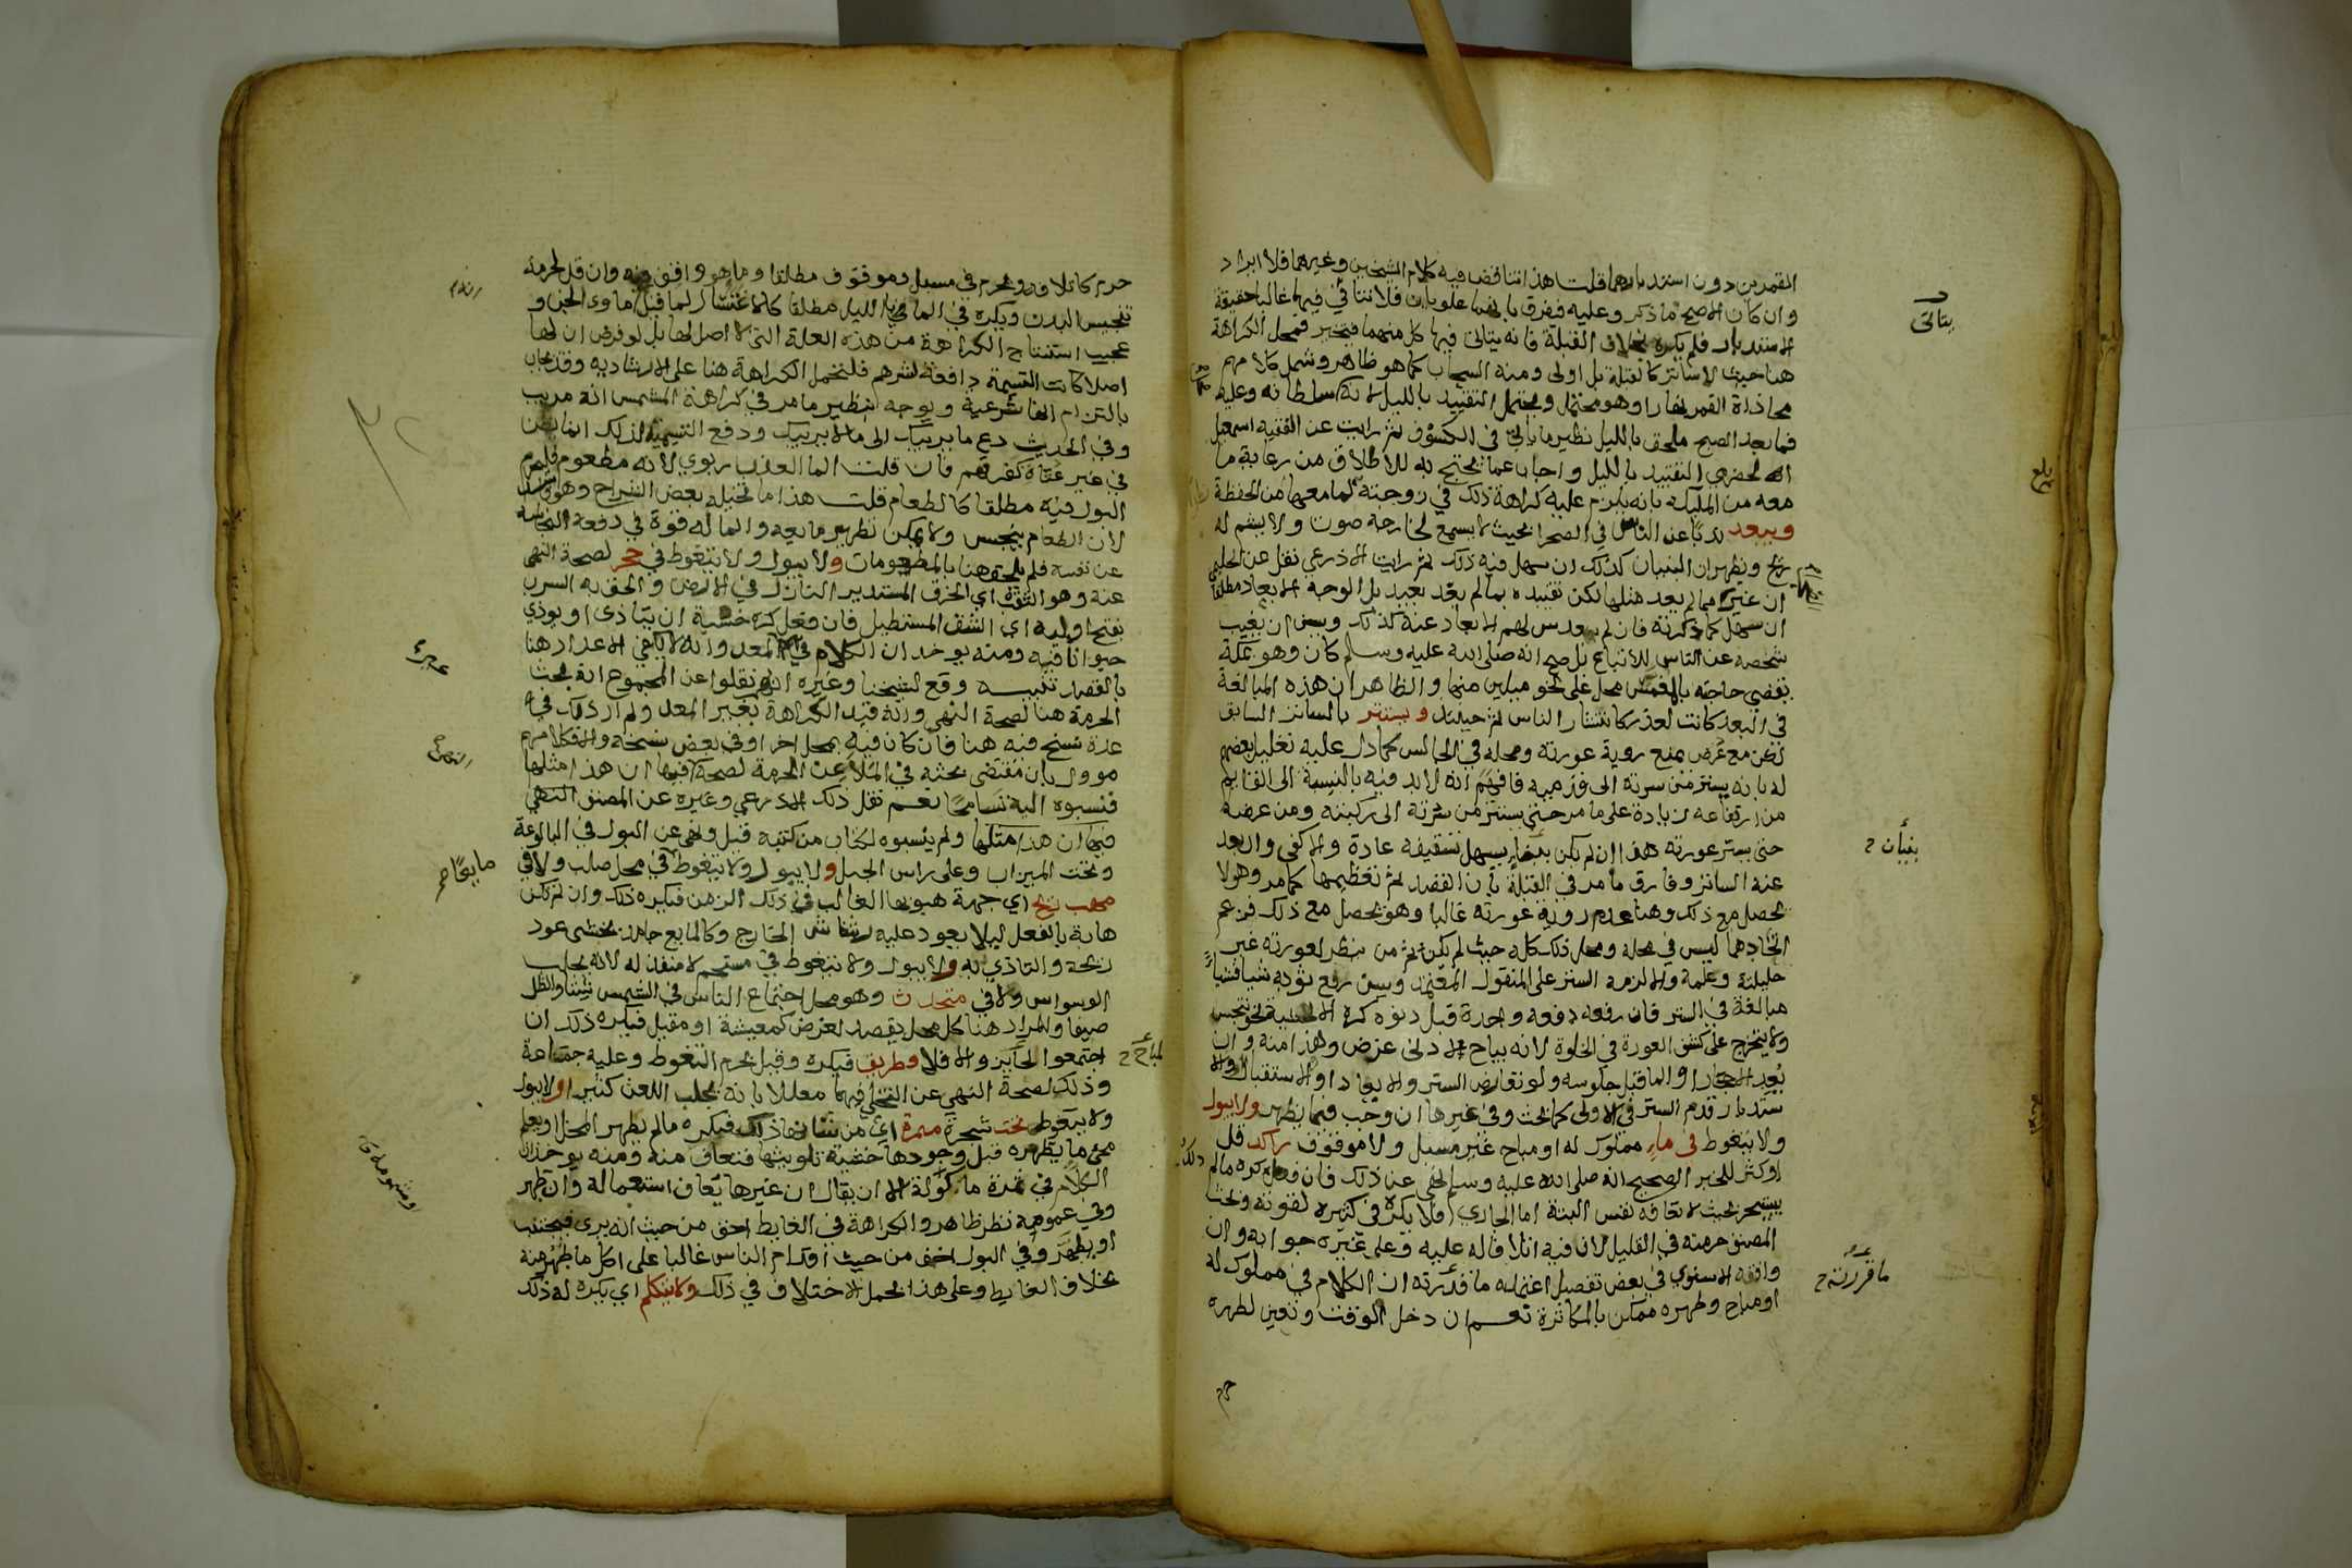 القمرين دون استدبارهما قلت هذا تناقض فيه كلام الشيخين وغيرهما فلا ايراد
وان كان الاصح ما ذكر وعليه ففرق بانهما علويان فلا تتاتى فيهما غالبا حقيقة
الاستدبار فلم يكره بخلاف القبلة فانه يتاتى فيها كل منهما فتخير فمحل الكراهة
هنا حيث لا ساتر كالقبلة بل اولى ومنه السحاب كما هو ظاهر وشمل كلامهم
محاذاة القمر نهارا وهو محتمل ويحتمل التقييد بالليل لانه سلطانه وعليه
فما بعد الصبح ملحق بالليل نظير ما ياتي في الكسوف ثم رايت عن الفقيه اسمعيل
الحضرمي التقييد بالليل واجاب عما يحتج به للاطلاق من رعاية ما
معه من المليكة بانه يلزم عليه كراهة ذلك في زوجته لما معها من الحفظة
ويبعد ندبا عن الناس في الصحرا بحيث لا يسمع لخارجه صوت ولا يشم له
ريح ويظهر ان البنيان كذلك ان سهل فيه ذلك ثم رايت الاذرعي نقل عن الحليمي
ان غيرها مما لم يعد مثلها لكن تقييده بما لم يعد بعيد بل الوجه الابعاد مطلقا
ان سهل كما ذكرته فان لم يبعد سن لهم الابعاد عنه كذلك ويسن ان يغيب
شخصه عن الناس للاتباع بل صح انه صلى الله عليه وسلم كان وهو بمكة
يقضي حاجته بالمغمس محل على نحو ميلين منها والظاهر ان هذه المبالغة
في البعد كانت لعذر كانتشار الناس ثم حينئذ ويستتر بالساتر السابق
لكن مع عرض يمنع روية عورته ومحله في الجالس كما دل عليه تعليل بعضهم
له بانه يستتر من سرته الى قدميه فافهم انه لا بد فيه بالنسبة الى القايم
من ارتفاعه زيادة على ما مر حتى يستتر من سرته الى ركبته ومن عرضه
حتى يستر عورته هذا ان لم يكن بفضاء يسهل تسقيفه عادة والا كفى وان بعد
عنه الساتر وفارق ما مر في القبلة بان القصد ثم تعظيمها كما مر وهو لا
يحصل مع ذلك وهنا عدم روية عورته غالبا وهو يحصل مع ذلك فزعم
اتحادهما ليس في محله ومحل ذلك كله حيث لم يكن ثم من ينظر لعورته غير
حليلته وعلمه والا لزمه الستر على المنقول المعتمد ويسن رفع ثوبه شيا فشيا
مبالغة في الستر فان رفعه دفعه واحدة قبل دنوه كره الا لخشية نحو تنجس
ولا يتخرج على كشف العورة في الخلوة لانه يباح لادنى غرض وهذا منه وان
يعد الاحجار او الما قبل جلوسه ولو تعارض الستر والابعاد او الاستقبال والا
ستدبار قدم الستر في الاولى كما بحث وفي غيرها ان وجب فيما يظهر ولا يبول
ولا يتغوط في ماء مملوك له او مباح غير مسبل ولا موقوف راكد قل
او كثر للخبر الصحيح انه صلى الله عليه وسلم نهى عن ذلك فان فعل كره ما لم
يستبحر بحيث لا تعافه نفس البتة اما الجاري فلا يكره في كثيره لقوته وبحث
المصنف حرمته في القليل لان فيه اتلافا له عليه وعلى غيره جوابه وان
وافقه الاسنوي في بعض تفصيل اعتمده ما قررته ان الكلام في مملوك له
او مباح وطهره ممكن بالمكاثرة نعم ان دخل الوقت وتعين لطهره
يتاتى
بنيان ح
ما قررته ح
حرم كاتلافه ويحرم في مسبل وموقوف مطلقا وما هو واقف فيه وان قل لحرمة
تنجيس البدن ويكره في الما بالليل مطلقا كالاغتسال لما قيل ماوى الجن و
عجيب استنتاج الكراهة من هذه العلة التي لا اصل لها بل لو فرض ان لها
اصلا كانت التسمية دافعة لشرهم فلتحمل الكراهة هنا على الارشادية وقد يجاب
بالتزام انها شرعية ويوجه بنظير ما مر في كراهة المشمس انه مريب
وفي الحديث دع ما يريبك الى ما لا يريبك ودفع التسمية لذلك انما يظن
في غير عتاة كفرتهم فان قلت الما العذب ربوي لانه مطعوم فليحرم
البول فيه مطلقا كالطعام قلت هذا ما تخيله بعض الشراح وهو فاسد
لان الطعام ينجس ولا يمكن تطهير مايعه والما له قوة في دفعه النجاسة
عن نفسه فلم يلحق هنا بالمطعومات ولا يبول ولا يتغوط في جحر لصحة النهي
عنه وهو الثقب اي الخرق المستدير النازل في الارض والحق به السرب
بفتح اوليه اي الشق المستطيل فان فعل كره خشية ان يتاذى او يوذي
حيوانا فيه ومنه يوخذ ان الكلام في غير المعد وانه لا يكفي الاعداد هنا
بالقصد تنبيه وقع لشيخنا وغيره انهم نقلوا عن المجموع انه بحث
الحرمة هنا لصحة النهي وانه قيد الكراهة بغير المعد ولم ار ذلك في
عدة نسخ منه هنا فان كان فيه بمحل اخر او في بعض نسخه والا فكلامهم
موول بان مقتضى بحثه في الملاعن الحرمة لصحة النهي فيها ان هذا مثلها
فنسبوه اليه تسامحا نعم نقل ذلك الاذرعي وغيره عن المصنف النهي
فيها ان هذا مثلها ولم ينسبوه لكتاب من كتبه قيل ونهي عن البول في البالوعة
وتحت الميزاب وعلى راس الجبل ولا يبول ولا يتغوط في محل صلب ولا في
مهب ريح اي جهة هبوبها الغالب في ذلك الزمن فيكره ذلك وان لم تكن
هابة بالفعل ليلا يعود عليه رشاش الخارج وكالمايع جامد يخشى عود
ريحه والتاذي به ولا يبول ولا يتغوط في مستحم لا منفذ له لانه يجلب
الوسواس ولا في متحدث وهو محل اجتماع الناس في الشمس شتا والظل
صيفا والمراد هنا كل محل يقصد لغرض كمعيشة او مقيل فيكره ذلك ان
اجتمعوا لجايز والا فلا وطريق فيكره وقيل يحرم التغوط وعليه جماعة
وذلك لصحة النهي عن التخلي فيهما معللا بانه يجلب اللعن كثيرا ولا يبول
ولا يتغوط تحت شجرة مثمرة اي من شانها ذلك فيكره ما لم يظهر المحل او يعلم
مجي ما يطهره قبل وجودها خشية تلويثها فتعاف منه ومنه يوخذ ان
الكلام في ثمرة ماكولة الا ان يقال ان غيرها يعاف استعماله وان طهر
وفي عمومه نظر ظاهر والكراهة في الغايط اخف من حيث انه يرى فيجتنب
او يطهر وفي البول اخف من حيث اقدام الناس غالبا على اكل ما طهر منه
بخلاف الغايط وعلى هذا يحمل الاختلاف في ذلك ولا يتكلم اي يكره له ذلك
مايعا صح
لمباح ح